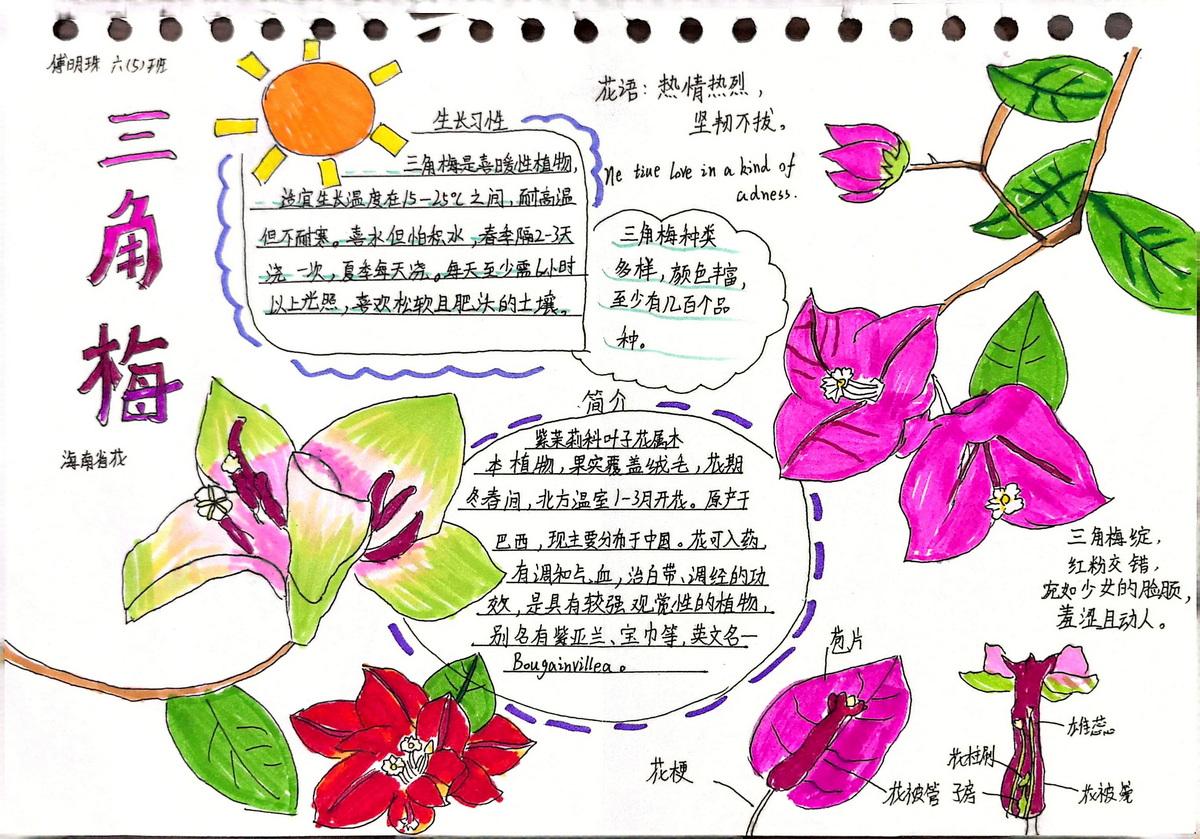 傅明珠 六(5)班
三角梅
海南省花
生长习性
三角梅是喜暖性植物,
适宜生长温度在15-25℃之间,耐高温
但不耐寒。喜水但怕积水,春季隔2-3天
浇一次,夏季每天浇。每天至少需6小时
以上光照,喜欢松软且肥沃的土壤。
花语:热情热烈,
坚韧不拔。
Ne tiue love in a kind of
adness.
三角梅种类
多样,颜色丰富,
至少有几百个品
种。
简介
紫茉莉科叶子花属木
本植物,果实覆盖绒毛,花期
冬春间,北方温室1-3月开花。原产于
巴西,现主要分布于中国。花可入药,
有调和气血,治白带、调经的功
效,是具有较强观赏性的植物,
别名有紫亚兰、宝巾等,英文名一
Bougainvillea。
三角梅绽,
红粉交错,
宛如少女的脸颐,
羞涩且动人。
苞片
花梗
花被管
雄蕊
花柱刷
子房
花被笼